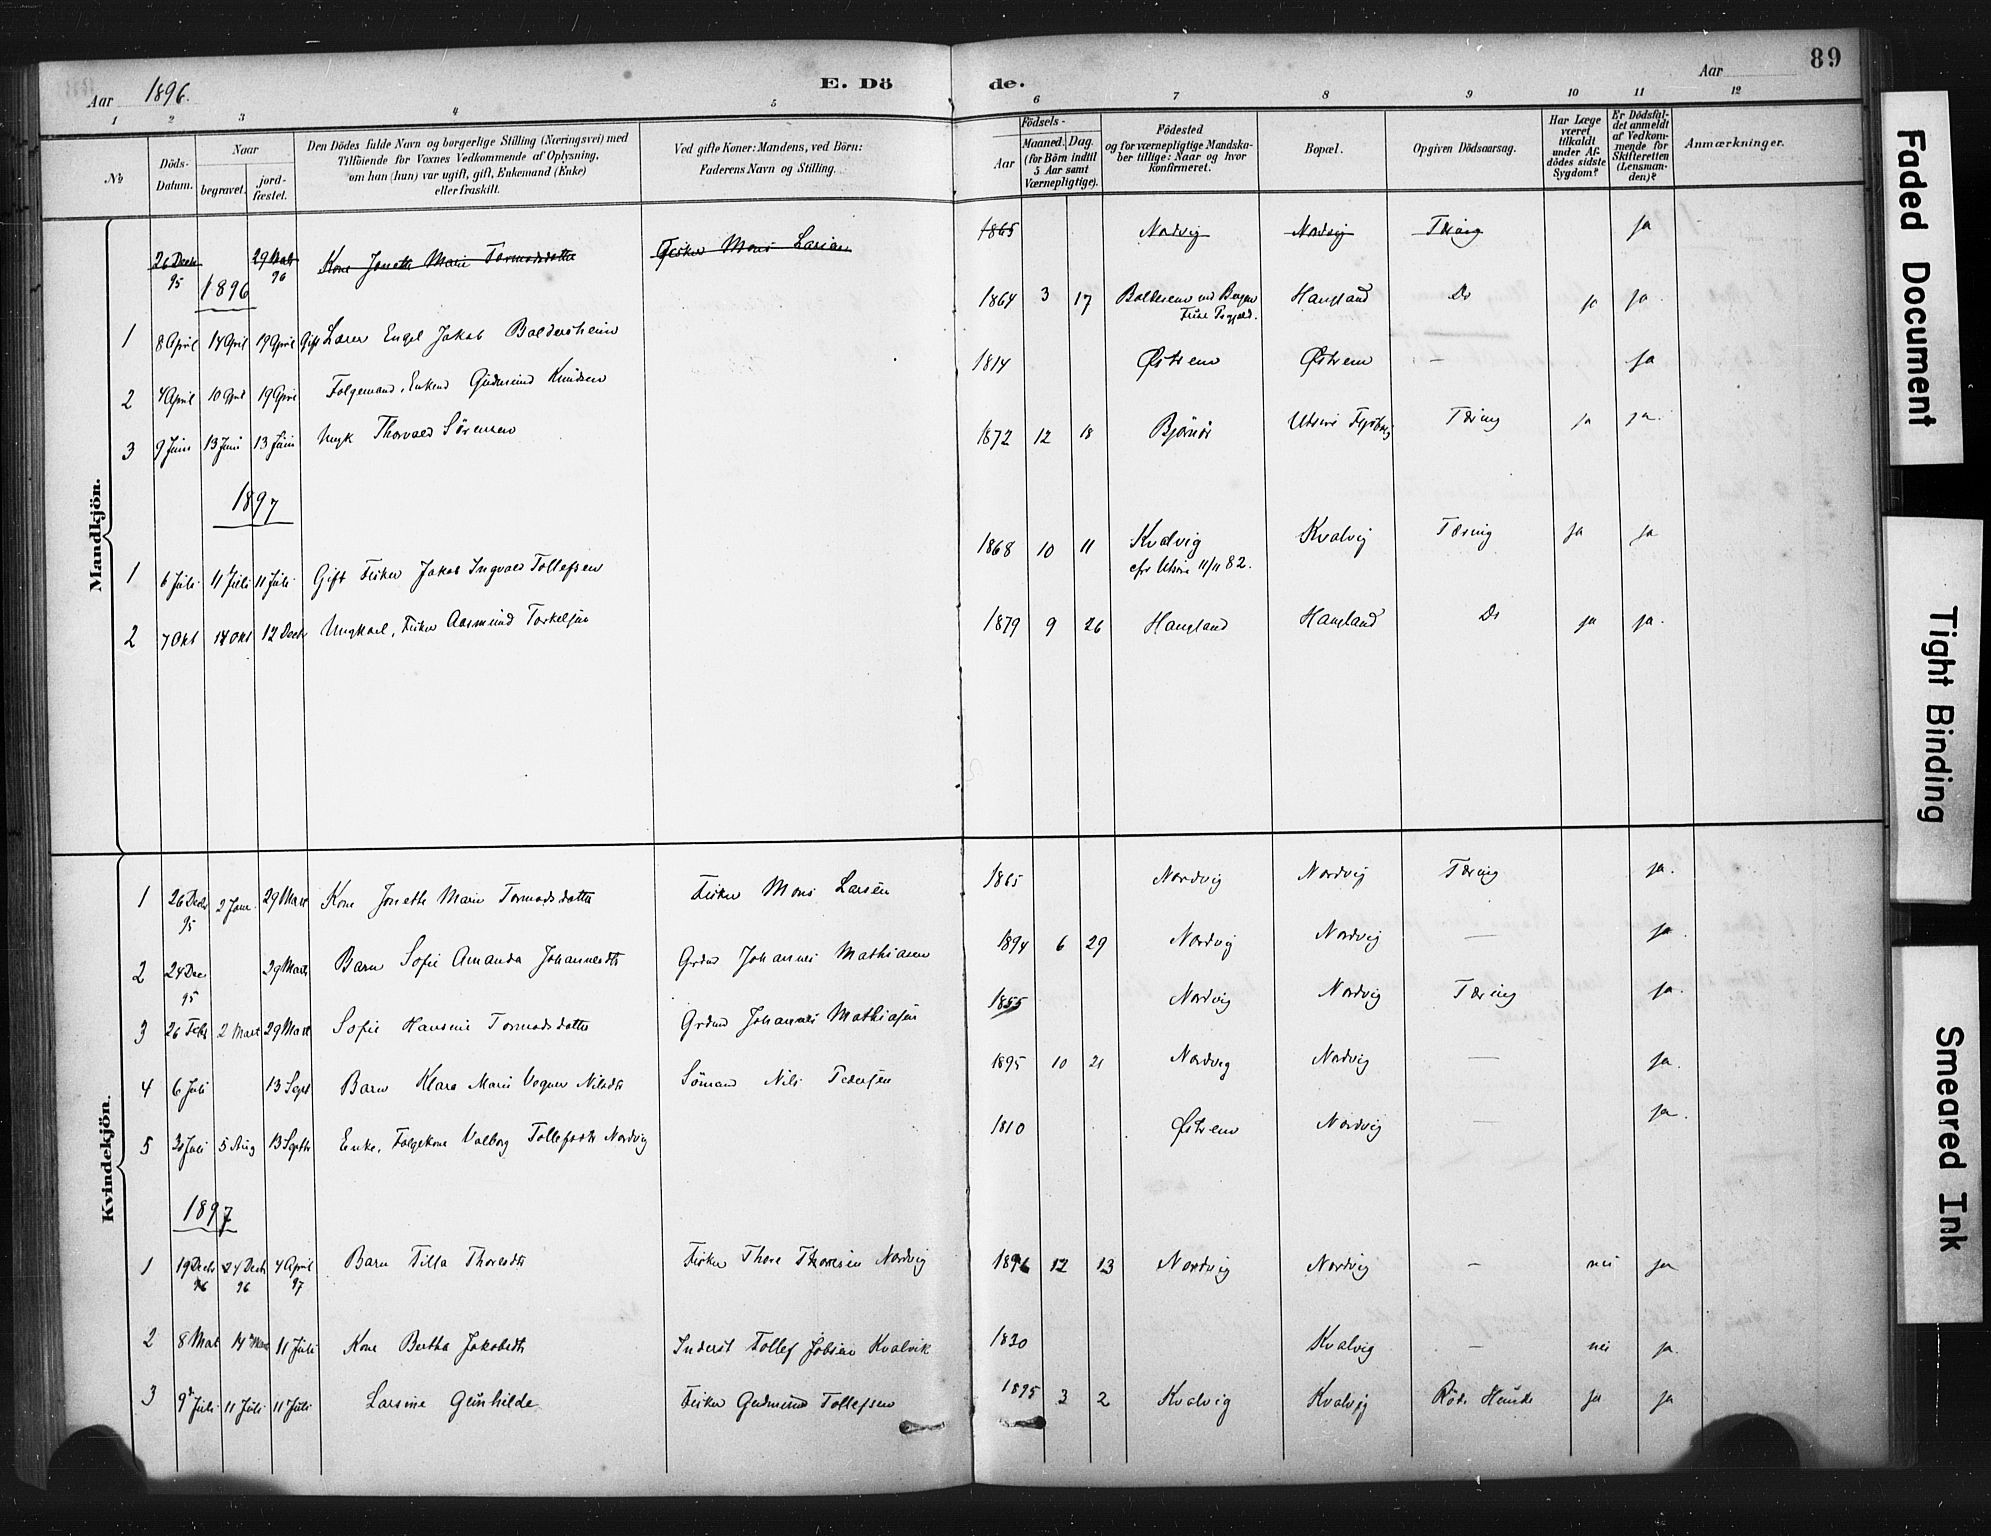 Aar 1896.
E. Dö de.
Aar
89
1 2 3 4 5 6 7 8 9 10 11 12
No
Döds-Datum.
Naar
begravet.
jord-fæstet.
Den Dödes fulde Navn og borgerlige Stilling (Næringsvei) med
Tilföiende for Voxnes Vedkommende af Oplysning,
om han (hun) var ugift, gift, Enkemand (Enke)
eller fraskilt.
Ved gifte Koner: Mandens, ved Börn:
Faderens Navn og Stilling.
Födsels-
Aar
Maaned. Dag.
(for Börn indtil
5 Aar samt
Værnepligtige).
Födested
og for værnepligtige Mandska-
ber tillige: Naar og hvor
konfirmeret.
Bopæl.
Opgiven Dödsaarsag.
Har Læge
været
tilkaldt
under Af-
dödes sidste
Sygdom?
Er Dödsfal-
det anmeldt
af Vedkom-
mende for
Skifteretten
(Lensman-
den)?
Anmærkninger.
Mandkjön.
26 Decbr 95 29 Marts 96 Kone Joneth Marie Tormodsdatter Fisker Mons Larsen 1865 Nordvig Nordvig Tæring ja
1896
1 8 April 14 April 19 April Gift Lærer Engel Jakob Baldersheim 1864 3 17 Haugland Do ja ja
2 4 April 10 April 19 April Folgemand, Enkem Gudmund Knudsen 1814 Østrem Østrem – ja
3 9 Juni 13 Juni 13 Juni Ungk Thorvald Sörensen 1872 12 18 Bjørnör Utsire Tæring ja ja.
1897
1 6 Juli 11 Juli 11 Juli Gift Fisker Jakob Ingvald Tollefsen 1868 10 11 Kvalvig Kvalvig Tæring ja ja
cfr Utsire 11/11 82.
2 7 Okt 14 Okt 12 Decbr Ungkarl, Fisker Aasmund Torkelsen 1879 9 26 Haugland Haugland Do ja ja.
Kvindekjön.
1 26 Decbr 95 2 Janr. 29 Mart Kone Joneth Marie Tormodsdatter Fisker Mons Larsen 1865 Nordvig Nordvig Tæring ja.
2 24 Dec 95 29 Marts Barn Sofie Amanda Johannesdtr Grdmd Johannes Mathiasen 1894 6 29 Nordvig Nordvig – ja.
3 26 Febr 2 Mart 29 Mart Sofie Hansine Tormodsdatter Grdmd Johannes Mathiasen 1855 Nordvig Nordvig Tæring ja.
4 6 Juli 13 Sept Barn Klara Marie Nilsdtr Sömand Nils Pedersen 1895 10 21 Nordvig Nordvig – ja.
5 30 Juli 5 Aug 13 Septbr Enke, Folgekone Valborg Tollefsdtr Nordvig 1810 Østrem Nordvig – ja.
1897
1 19 Decbr 96 24 Decbr 96 4 April 97 Barn Tilla Thoresdtr Fisker Thore Thoresen Nordvig 1896 12 13 Nordvig Nordvig – nei ja
2 8 Mai 14 11 Juli Kone Bertha Jakobsdtr Inderst Tollef Kvalvik 1830 Kvalvig – nei ja.
3 9 Juli 11 Juli 11 Juli Larsine Gunhilde Fisker Gudmund Tollefsen 1895 3 2 Kvalvig Kvalvig Röde Hunde ja ja
Faded Document
Tight Binding
Smeared Ink